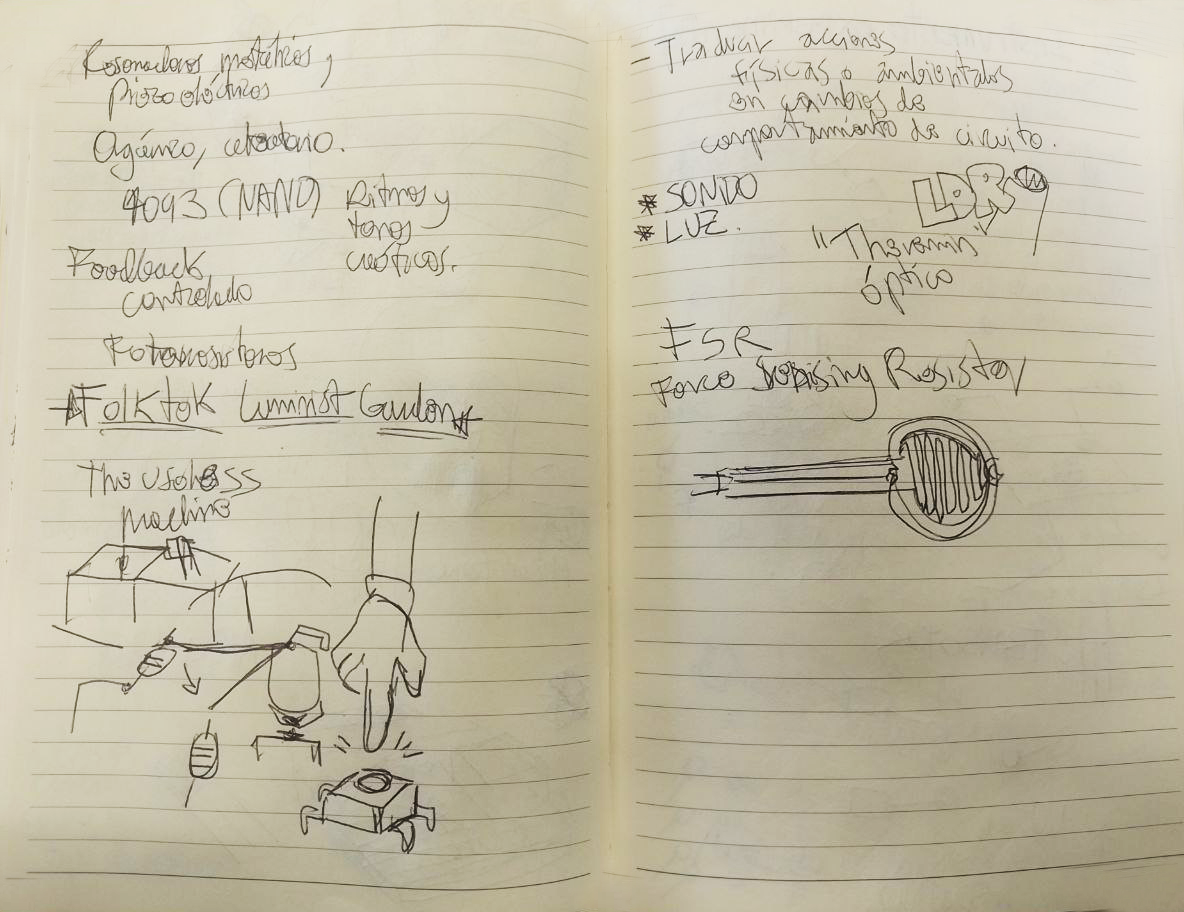 Resonadores metálicos,
piezoeléctricos
Orgánico, aleatorio.
4093 (NAND)
Ritmos y
tonos
caóticos.
Feedback
controlado
Fotoresistores
Folktek Luminist Garden
The useless
machine
- Traducir acciones
físicas o ambientales
en cambios de
comportamiento de circuito.
* SONIDO
* LUZ.
LDR
"Theremin"
óptico
FSR
Force Sensing Resistor